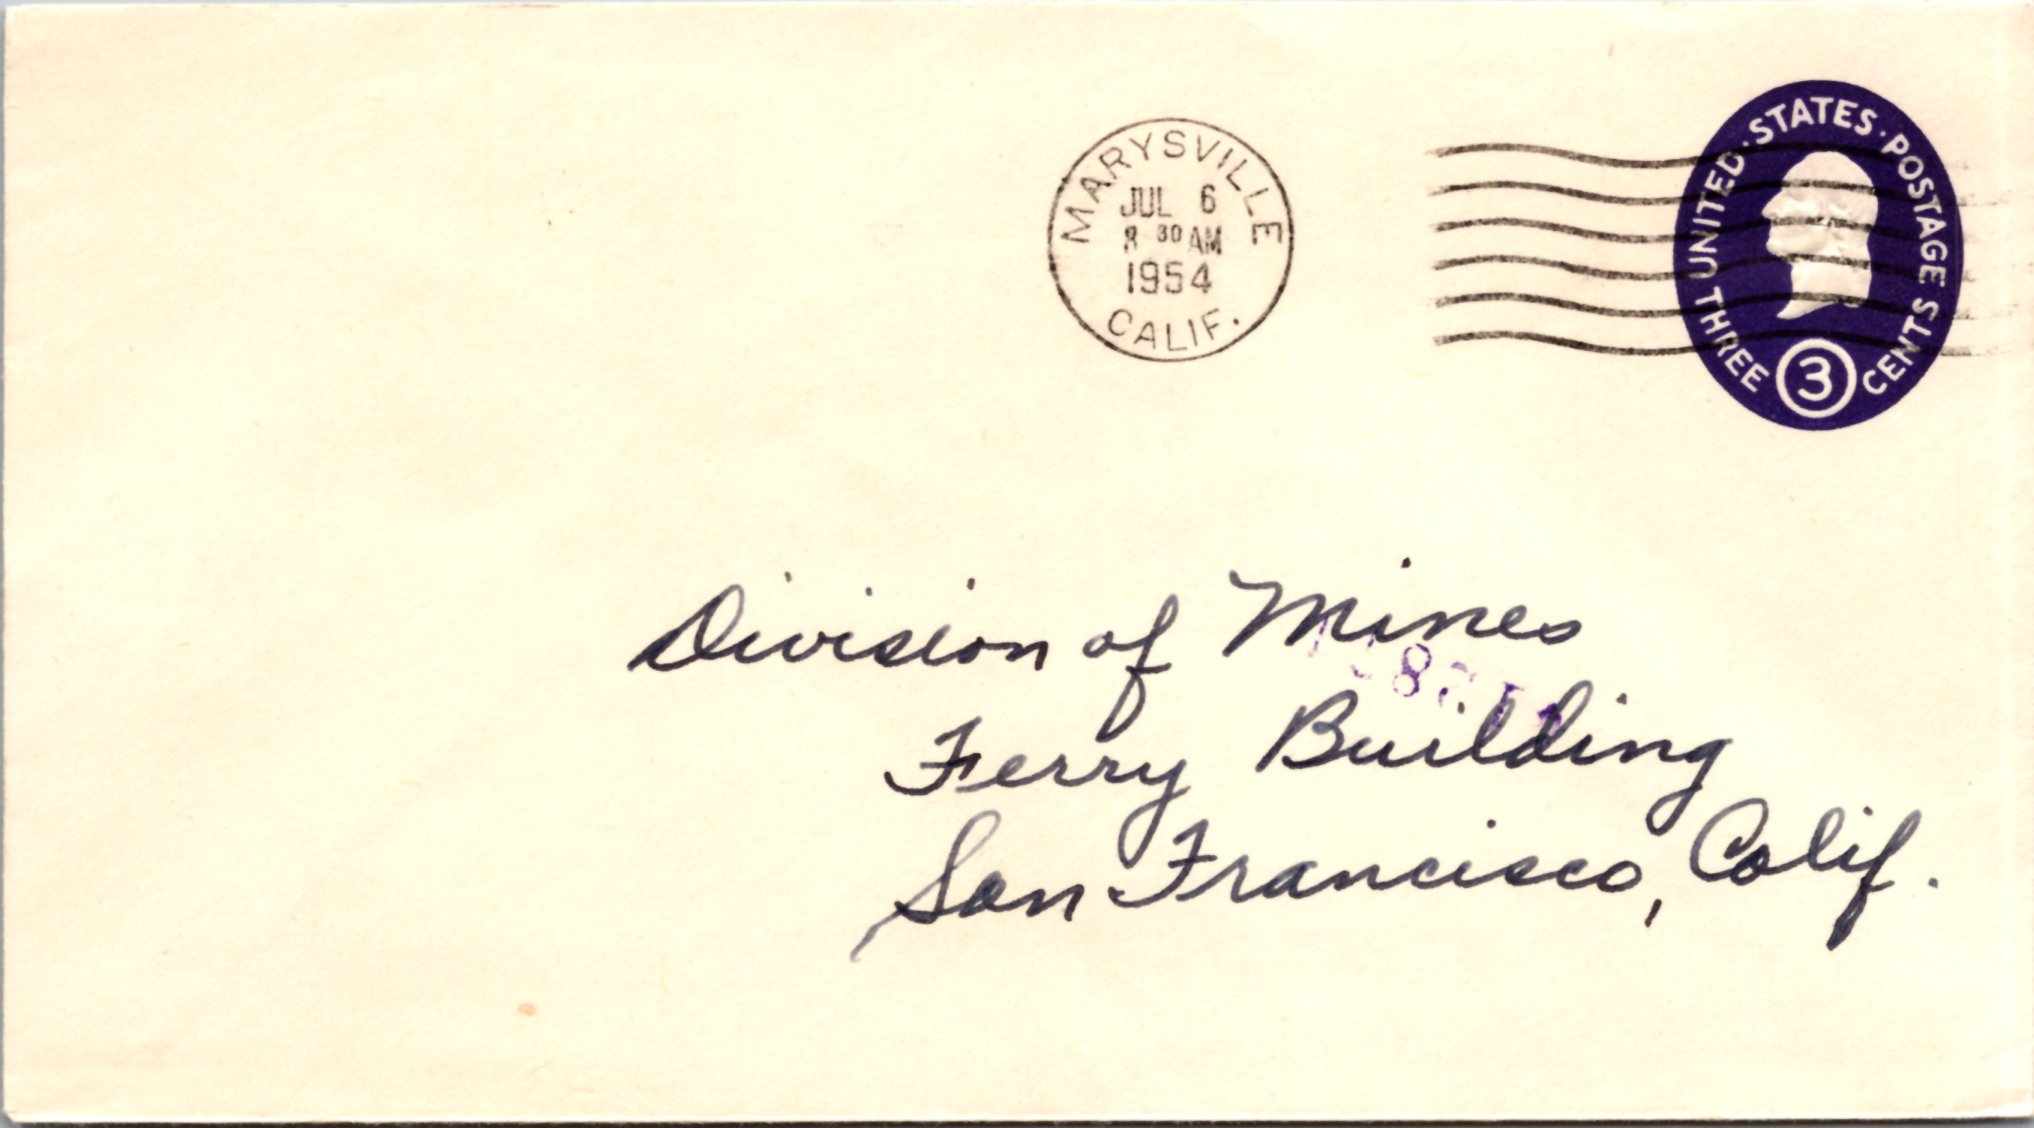 MARYSVILLE
JUL 6
8 30 AM
1954
CALIF.
UNITED · STATES · POSTAGE
THREE 3 CENTS
Division of Mines
Ferry Building
San Francisco, Calif.